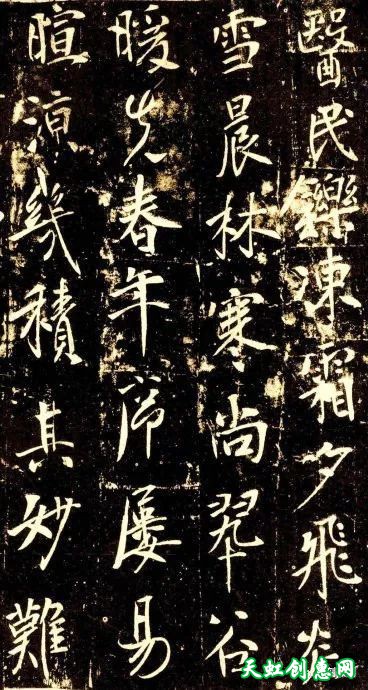 醫民鑠凍霜夕飛炎
雪晨林寒尚翠谷
暖先春年帝屢易
暄涼幾積其妙難
天虹创惠网